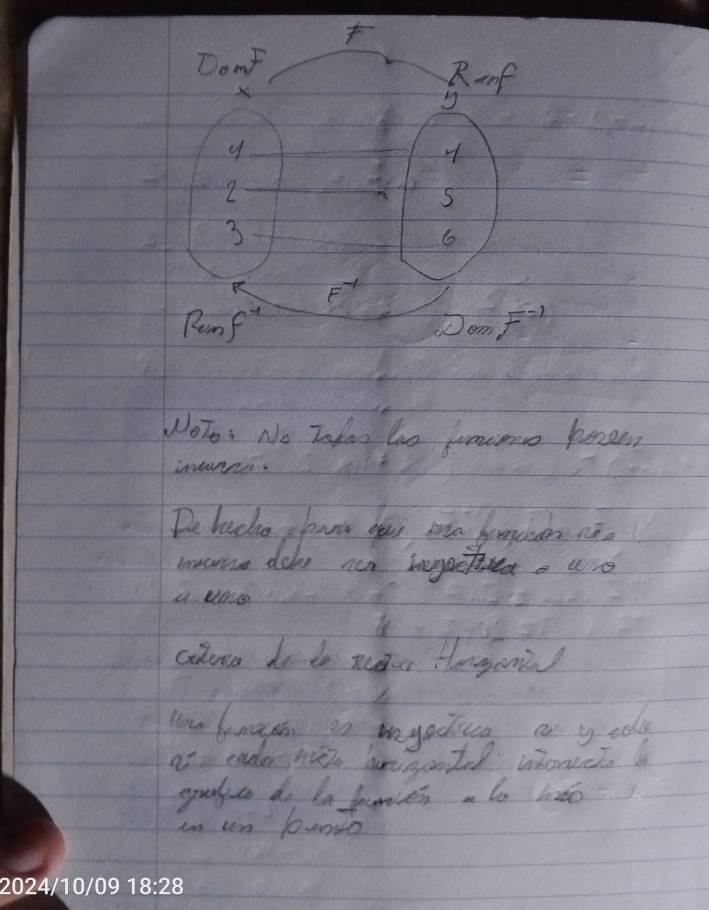 F
Dom F Ran f
x y
4 4
2 5
3 6
F⁻¹
Ran f⁻¹ Dom F⁻¹
Nota: No todas las funciones poseen
inversa.
De hecho para que una función sea
inversa debe ser inyectiva o uno
a uno
criterio de la recta Horizontal
una función es inyectiva si y solo
si cada recta horizontal intersecta la
grafica de la función a lo más
en un punto
2024/10/09 18:28